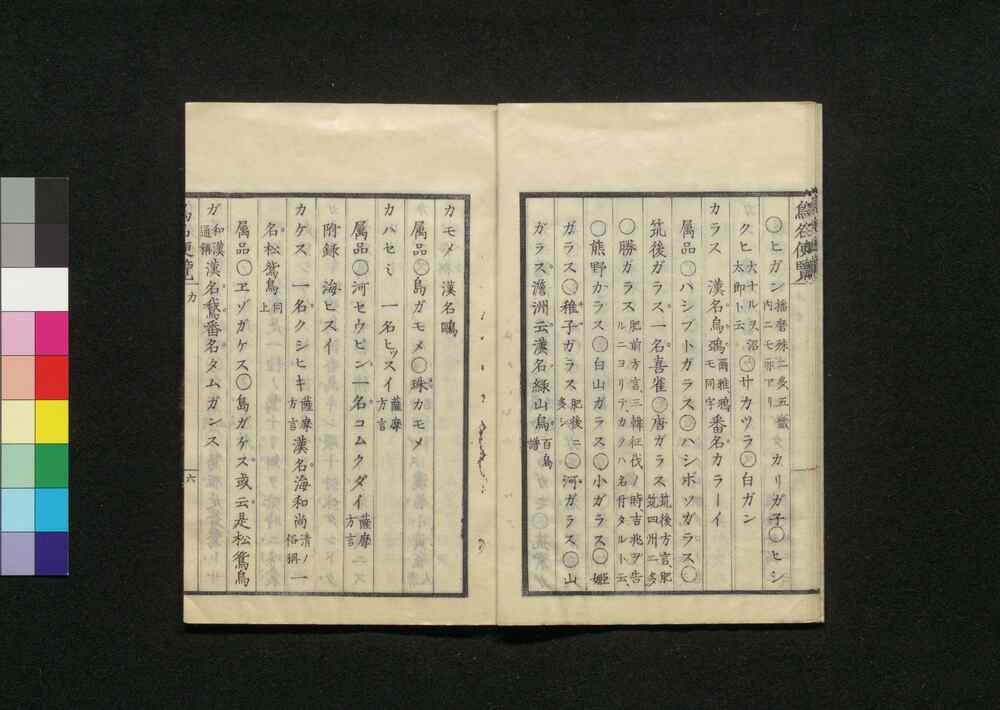 鳥名便覧
○ヒガン播磨殊ニ多五畿内ニモ亦アリ タカリガ子○ヒシ
クヒ大ナルヲ沼太郎ト云○サカツラ○白ガン
カラス 漢名烏鵶爾雅鴉モ同字番名カラーイ
属品○ハシブトガラス○ハシボソガラス○
筑後ガラス一名喜雀○唐ガラス筑後方言、肥筑四州ニ多
○勝ガラス肥前方言三韓征伐ノ時吉兆ヲ告ルニヨリテ、カクハ名付タルト云、
○熊野カラス○白山ガラス○小ガラス○姫
ガラス○稚子ガラス肥後ニ多シ○河ガラス○山
ガラス澹洲云漢名緑山烏百鳥譜
カモメ 漢名鷗
属品○島ガモメ○珠カモメ
カハセミ 一名ヒッスイ薩摩方言
属品○河セウビン一名コムクダイ薩摩方言
附録 海ヒスイ
カケス 一名クシヒキ薩摩方言漢名海和尚清ノ俗稱一
名松鴬鳥同上
属品○ヱゾガケス○島ガケス或云是松鴬鳥
ガ和漢通稱漢名鵞番名タムガンス
カ
六